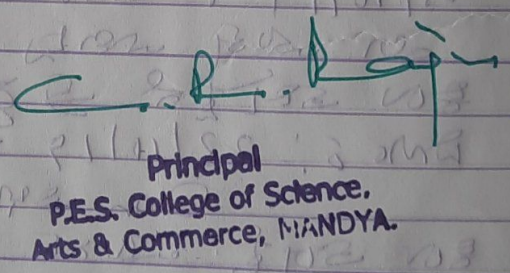 C. R. Raju
Principal
P.E.S. College of Science,
Arts & Commerce, MANDYA.